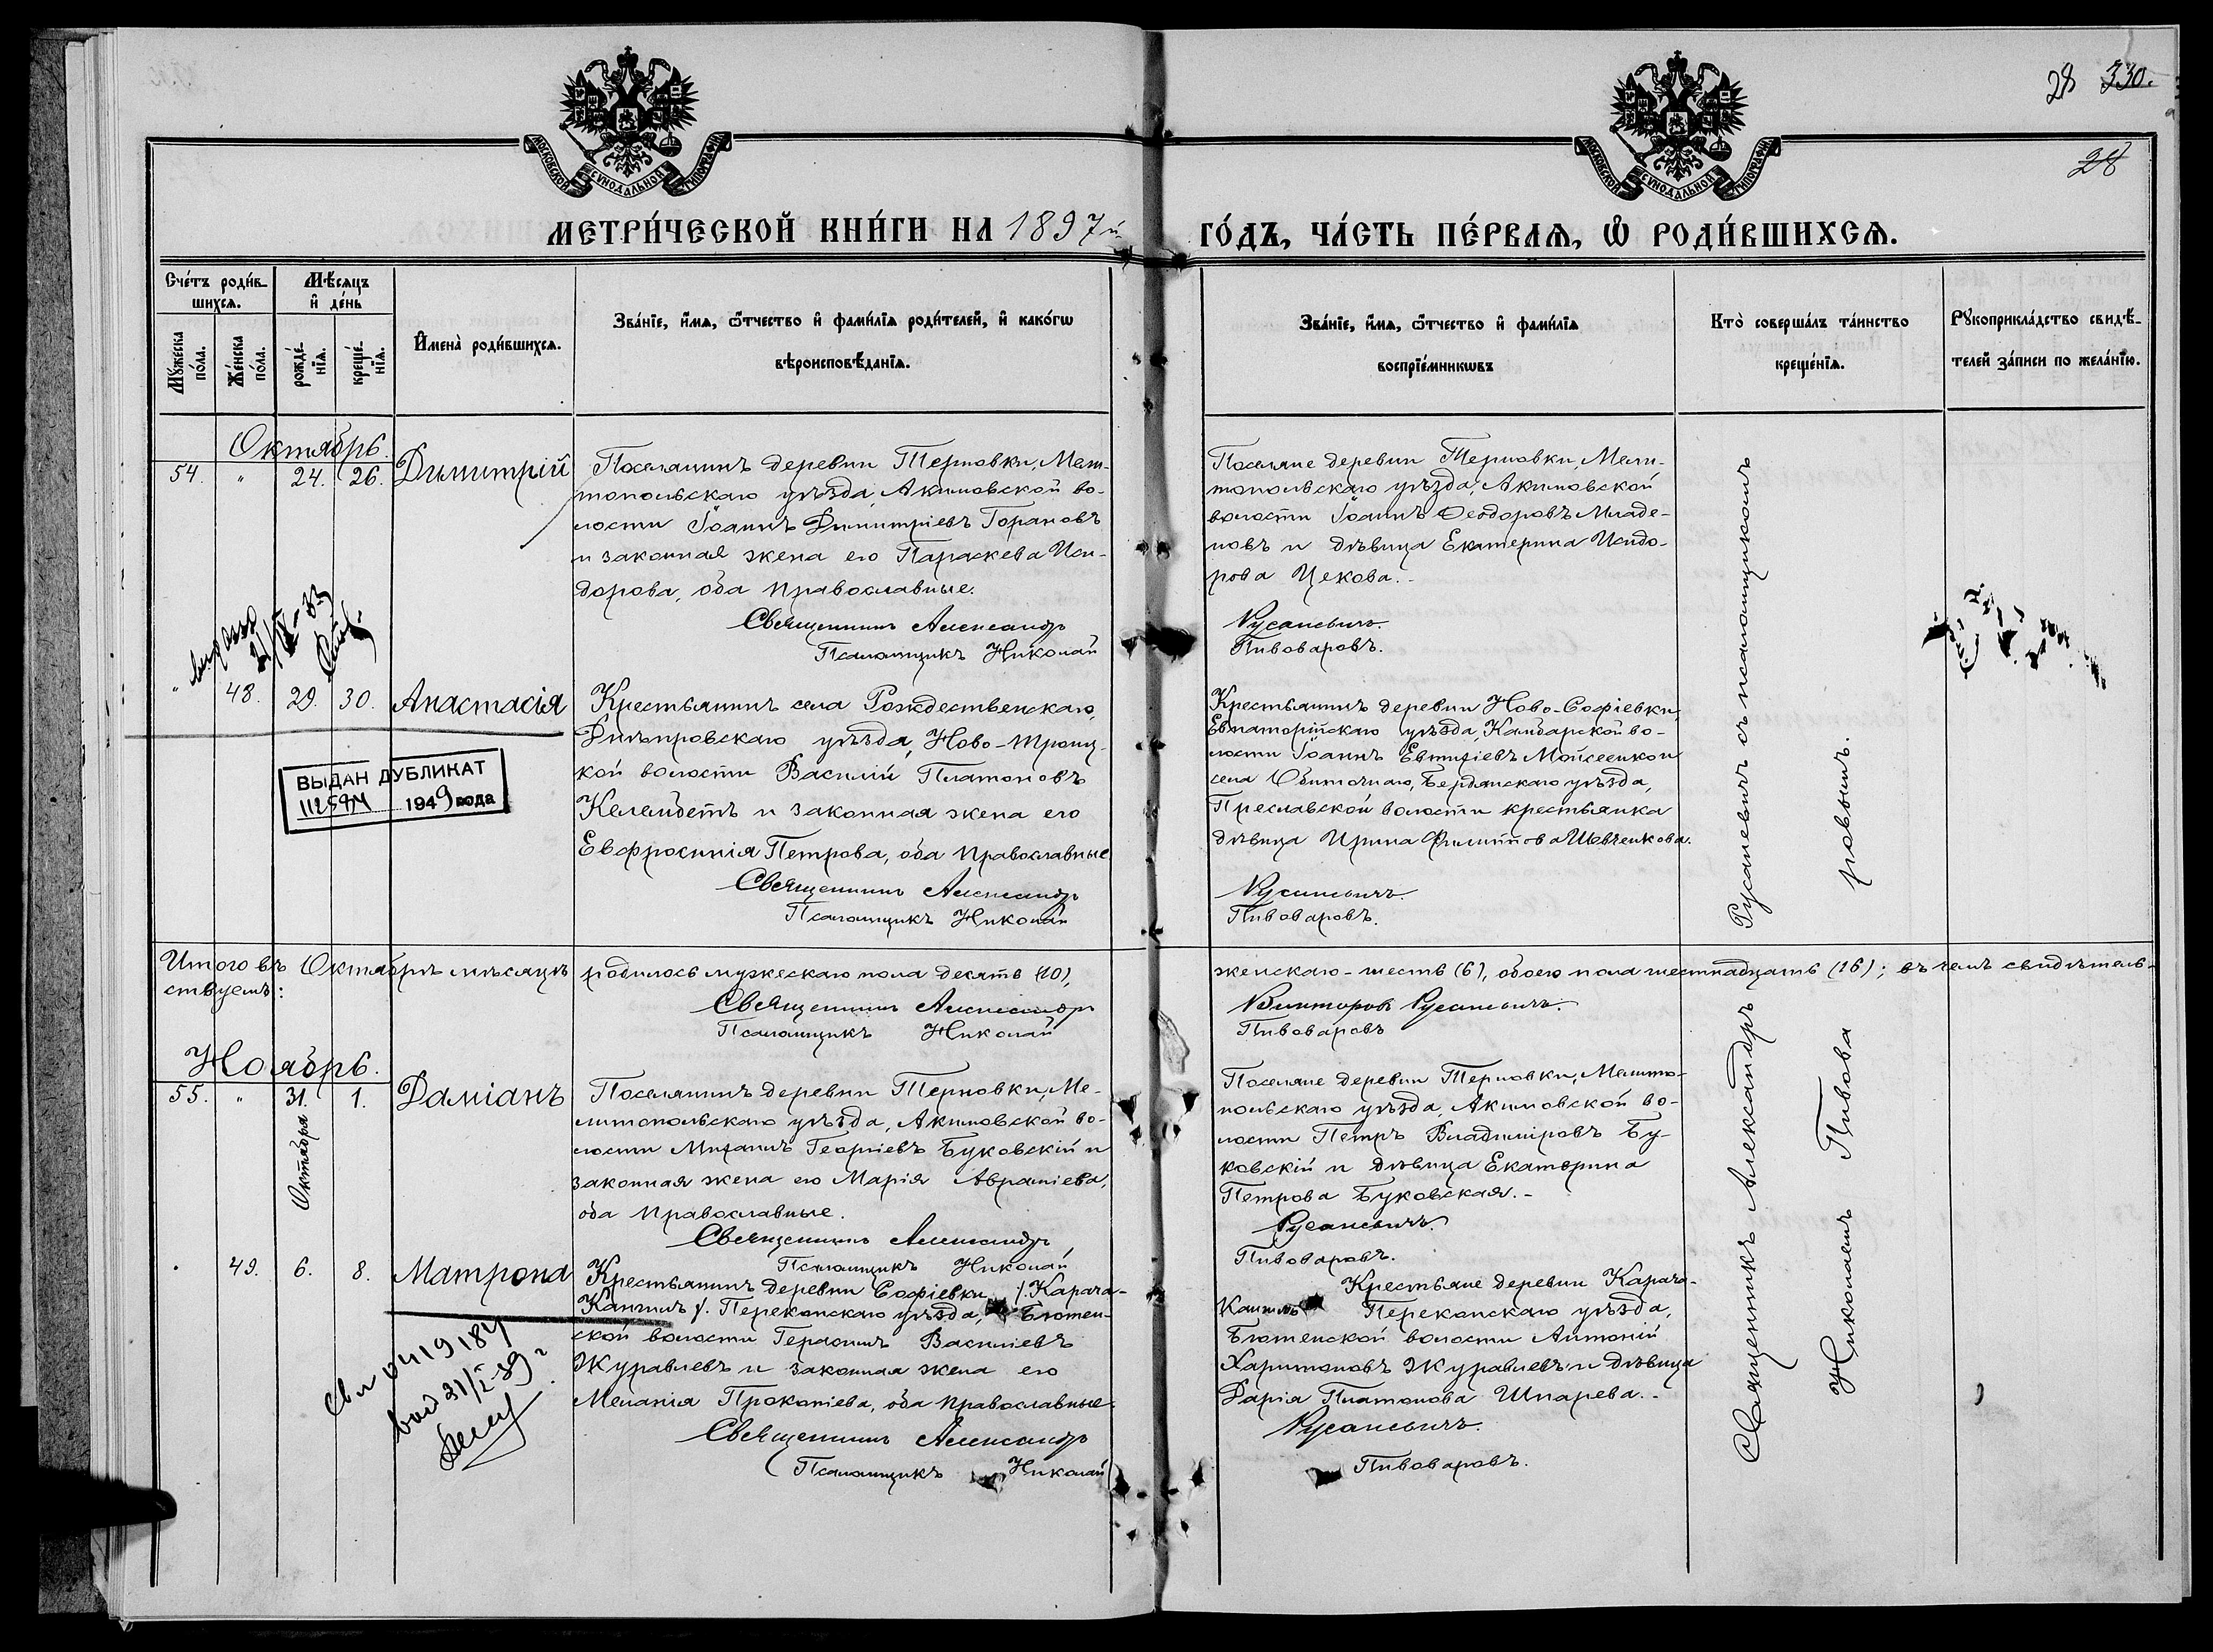 28 330.
28
МОСКОВСКОЙ СѴНОДАЛЬНОЙ ТИПОГРАФІИ
МОСКОВСКОЙ СѴНОДАЛЬНОЙ ТИПОГРАФІИ
МЕТРИ́ЧЕСКОЙ КНИ́ГИ НА 1897й
ГО́ДЪ, ЧА́СТЬ ПЕ́РВАѦ, Ѡ҆ РОДИ́ВШИХСѦ.
Сче́тъ роди́в-
шихсѧ.
Мꙋ́жеска
по́ла.
Же́нска
по́ла.
Мѣ́сѧцъ
и҆ де́нь
рожде́-
нїѧ.
креще́-
нїѧ.
И҆мена̀ роди́вшихсѧ.
Зва́нїе, и҆́мѧ, ѻ҆́тчество и҆ фами́лїѧ роди́телей, и҆ како́гѡ
вѣроисповѣ́данїѧ.
Зва́нїе, и҆́мѧ, ѻ҆́тчество и҆ фами́лїѧ
воспрїе́мникѡвъ
Кто̀ соверша́лъ та́инство
креще́нїѧ.
Рꙋкоприкла́дство свидѣ́-
телей за́писи по жела́нїю.
Октябрь.
54. " 24. 26. Димитрій
Поселянинъ деревни Терновки, Мели-
топольскаго уѣзда, Акимовской во-
лости Іоаннъ Димитріевъ Горановъ
и законная жена его Параскева Иси-
дорова, оба православные.
Священникъ Александръ
Псаломщикъ Николай
Поселяне деревни Терновки, Мели-
топольскаго уѣзда, Акимовской
волости Іоаннъ Ѳеодоровъ Младе-
новъ и дѣвица Екатерина Исидо-
рова Цекова.-
Русаневичъ.
Пивоваровъ.
" 48. 29. 30. Анастасія
Крестьянинъ села Рождественскаго,
Днѣпровскаго уѣзда, Ново-Троиц-
кой волости Василій Платоновъ
Келембетъ и законная жена его
Евфросинія Петрова, оба православные
Священникъ Александръ
Псаломщикъ Николай
ВЫДАН ДУБЛИКАТ
1949 года
Крестьянинъ деревни Ново-Софіевки,
Евпаторійскаго уѣзда, Камбарской во-
лости Іоаннъ Евтихіевъ Мойсеенко и
села Обиточнаго, Бердянскаго уѣзда,
Преславской волости крестьянка
дѣвица Ирина Филиппова Шевченкова.
Русаневичъ.
Пивоваровъ.
Итого въ Октябрѣ мѣсяцѣ родилось мужескаго пола десять (10),
женскаго-шесть (6), обоего пола шестнадцать (16); въ чемъ свидѣтель-
ствуемъ:
Священникъ Александръ
Псаломщикъ Николай
Викторовъ Русаневичъ.
Пивоваровъ
Ноябрь.
55. " 31. 1. Даміанъ
Октября
Поселянинъ деревни Терновки, Ме-
литопольскаго уѣзда, Акимовской во-
лости Михаилъ Георгіевъ Буковскій и
законная жена его Марія Авраміева,
оба православные.
Священникъ Александръ
Псаломщикъ Николай
Поселяне деревни Терновки, Мелито-
польскаго уѣзда, Акимовской во-
лости Петръ Владиміровъ Бу-
ковскій и дѣвица Екатерина
Петрова Буковская.-
Русаневичъ.
Пивоваровъ.
49. 6. 8. Матрона
Крестьянинъ деревни Софіевки, /. Карача-
Кангилъ /. Перекопскаго уѣзда, Бютен-
ской волости Герасимъ Василіевъ
Журавлевъ и законная жена его
Меланія Прокопіева, оба православные.
Священникъ Александръ
Псаломщикъ Николай
Крестьяне деревни Карача-
Кангилъ Перекопскаго уѣзда,
Бютенской волости Антоній
Харитоновъ Журавлевъ и дѣвица
Дарія Платонова Шпарева.-
Русаневичъ.
Пивоваровъ.
Священникъ Александръ Русаневичъ съ псаломщикомъ
Николаемъ Пивоваровымъ.